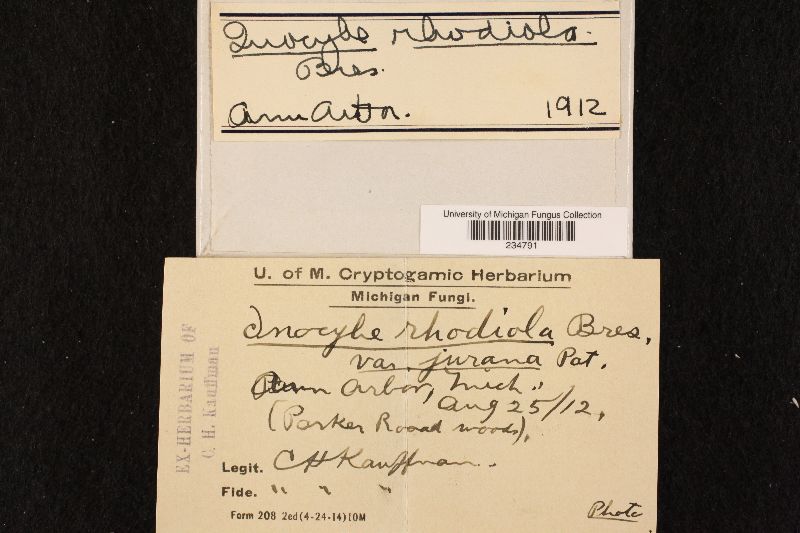 Inocybe rhodiola.
Bres.
Ann Arbor. 1912
University of Michigan Fungus Collection
234791
U. of M. Cryptogamic Herbarium
Michigan Fungi.
Inocybe rhodiola Bres.
var. jurana Pat.
Ann Arbor, Mich.,
Aug 25/12,
(Parker Rooad woods),
Legit. CH Kauffman.
Fide. " " "
Form 208 2ed(4-24-14)10M
Photo
EX-HERBARIUM OF
C. H. Kauffman